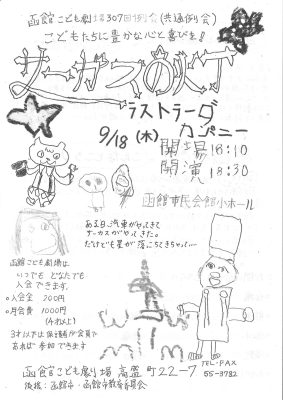 函館こども劇場307回例会(共通例会)
こどもたちに豊かな心と喜びを!
サーカスの灯
ラストラーダ
カンパニー
9/18(木)
開場 18:10
開演 18:30
函館市民会館小ホール
ある日、汽車がやってきて
サーカスがやってきた。
だけども星が落っこちてきちゃって……
函館こども劇場は
いつでも どなたでも
入会できます。
○入会金 200円
○月会費 1000円
(4才以上)
3才以下は保護者が会員で
あれば参加できます
TEL・FAX
55-3782
函館こども劇場 高盛町22-7
後援:函館市・函館市教育委員会